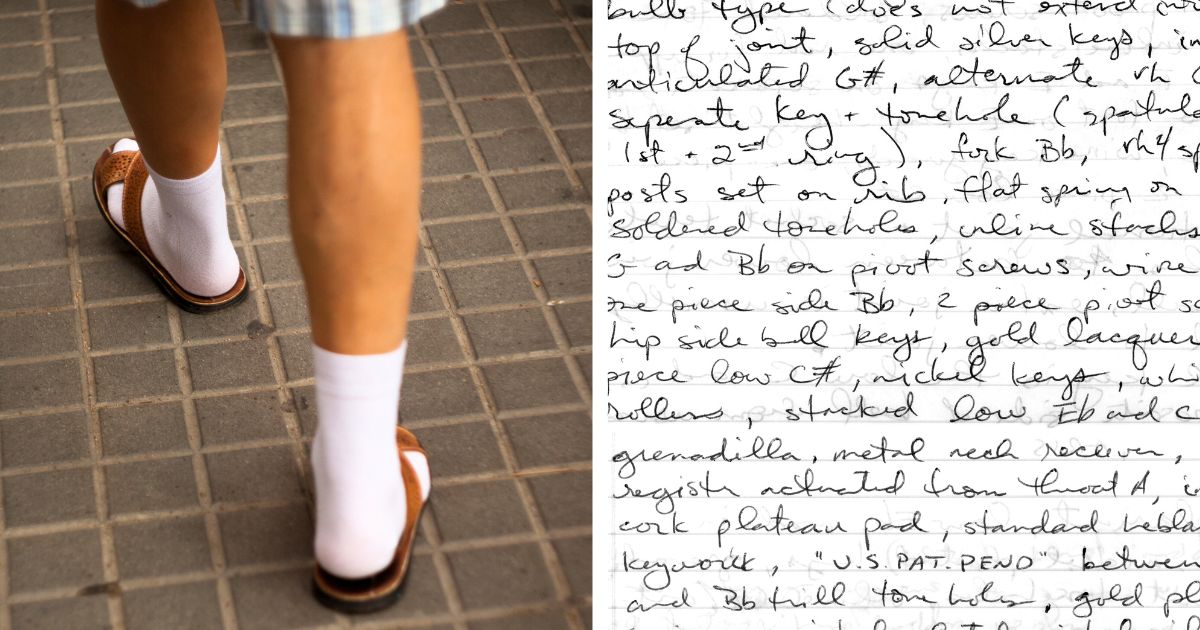 bulb type (does not extend
top of joint, solid silver keys, in
articulated G#, alternate rh
seperate key + tonehole (spatula
1st + 2nd ring), fork Bb, rh4
posts set on rib, flat spring on
soldered toneholes, inline stacks
G ad Bb on pivot screws, wire
one piece side Bb, 2 piece pivot
hip side bell keys, gold lacquer
piece low C#, nickel keys, whi
rollers, stacked low Eb ad C
grenadilla, metal neck receiver,
register actuated from throat A,
cork plateau pad, standard
keywork, "U.S. PAT. PEND" between
and Bb trill tone holes, gold pl